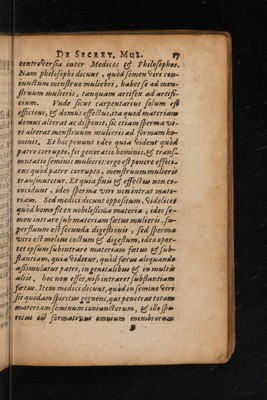 DE SECRET. MUL. 17
controversia inter Medicos & Philosophos.
Nam philosophi dicunt, quòd semen viri con
iunctum menstruo muliebri, habet se ad men-
struum mulieris, tanquam artifex ad artifi-
cium. Vnde sicut carpentarius solum est
efficiens, & domus effectus, ita quod materiam
domus alterat ac disponit, sic etiam sperma vi-
ri alterat menstruum mulieris ad formam ho-
minis. Et hoc ponunt ideo quia vident quòd
patre corrupto, fit generatio hominis, & trans-
mutatio seminis mulieris: ergo est ponere effici-
ens quòd patre corrupto, menstruum mulieris
transmutetur. Et quia finis & effectus non co-
incidunt, ideo sperma viri non intrat mate-
riam. Sed medici dicunt oppositum, Videlicet
quòd homo fit ex nobilissima materia, ideo se-
men intrare sub materiam fœtus mulieris. Su-
perfluum est secundæ digestionis, sed sperma
viri est melius coctum & digestum, ideo opor-
tet ipsum subintrare materiam fœtus & sub-
stantiam, quia videtur, quòd fœtus aliquando
assimulatur patri, in genitalibus & in multis
aliis, hoc non esset, nisi intraret substantiam
fœtus. Item medici dicunt, quòd in semine viri
sit quidam spiritus gignens, qui penetrat totam
materiam seminum coniunctorum, & ille spi-
ritus est formatiuus omnium membrorum
B